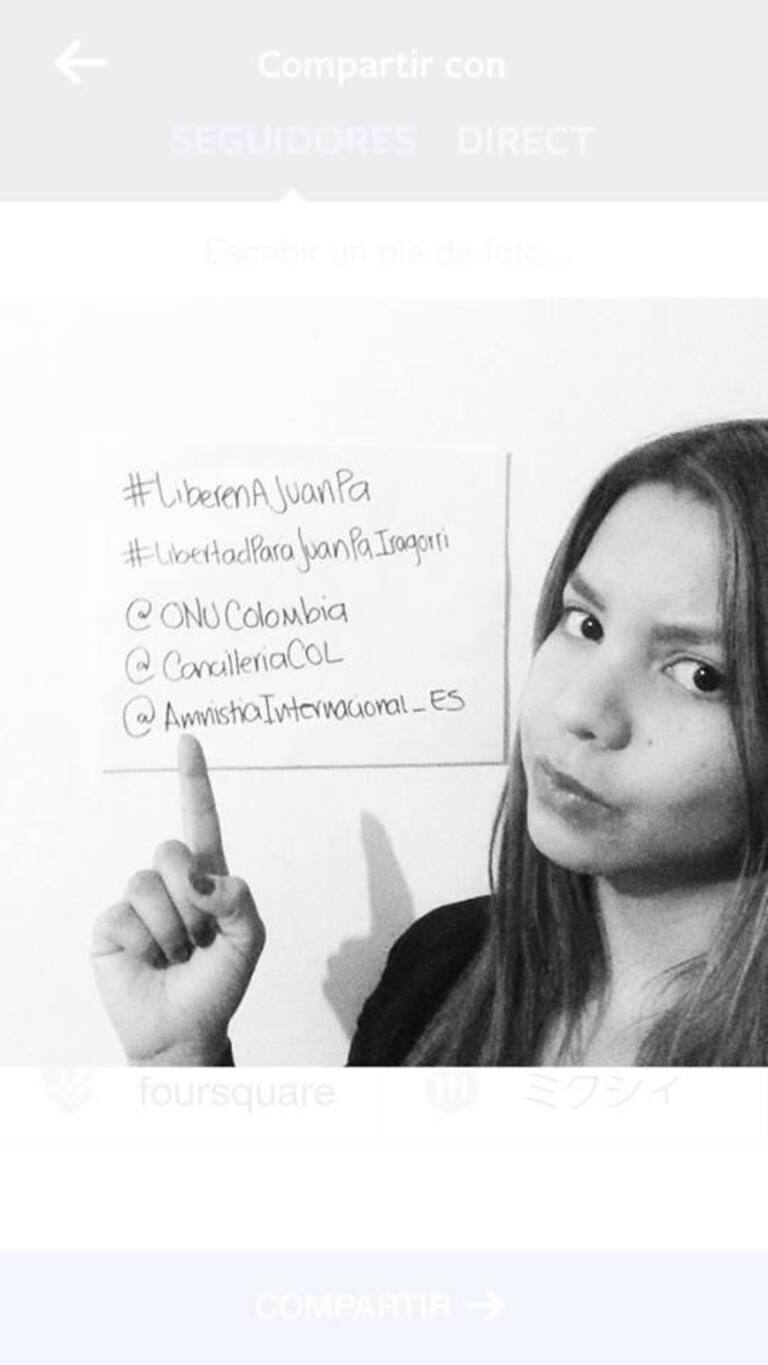 Compartir con
SEGUIDORES DIRECT
Escribir un pie de foto...
#LiberenAJuanPa
#LibertadParaJuanPaIragorri
@ONUColombia
@CancilleriaCOL
@AmnistiaInternacional_ES
foursquare ミクシィ
COMPARTIR